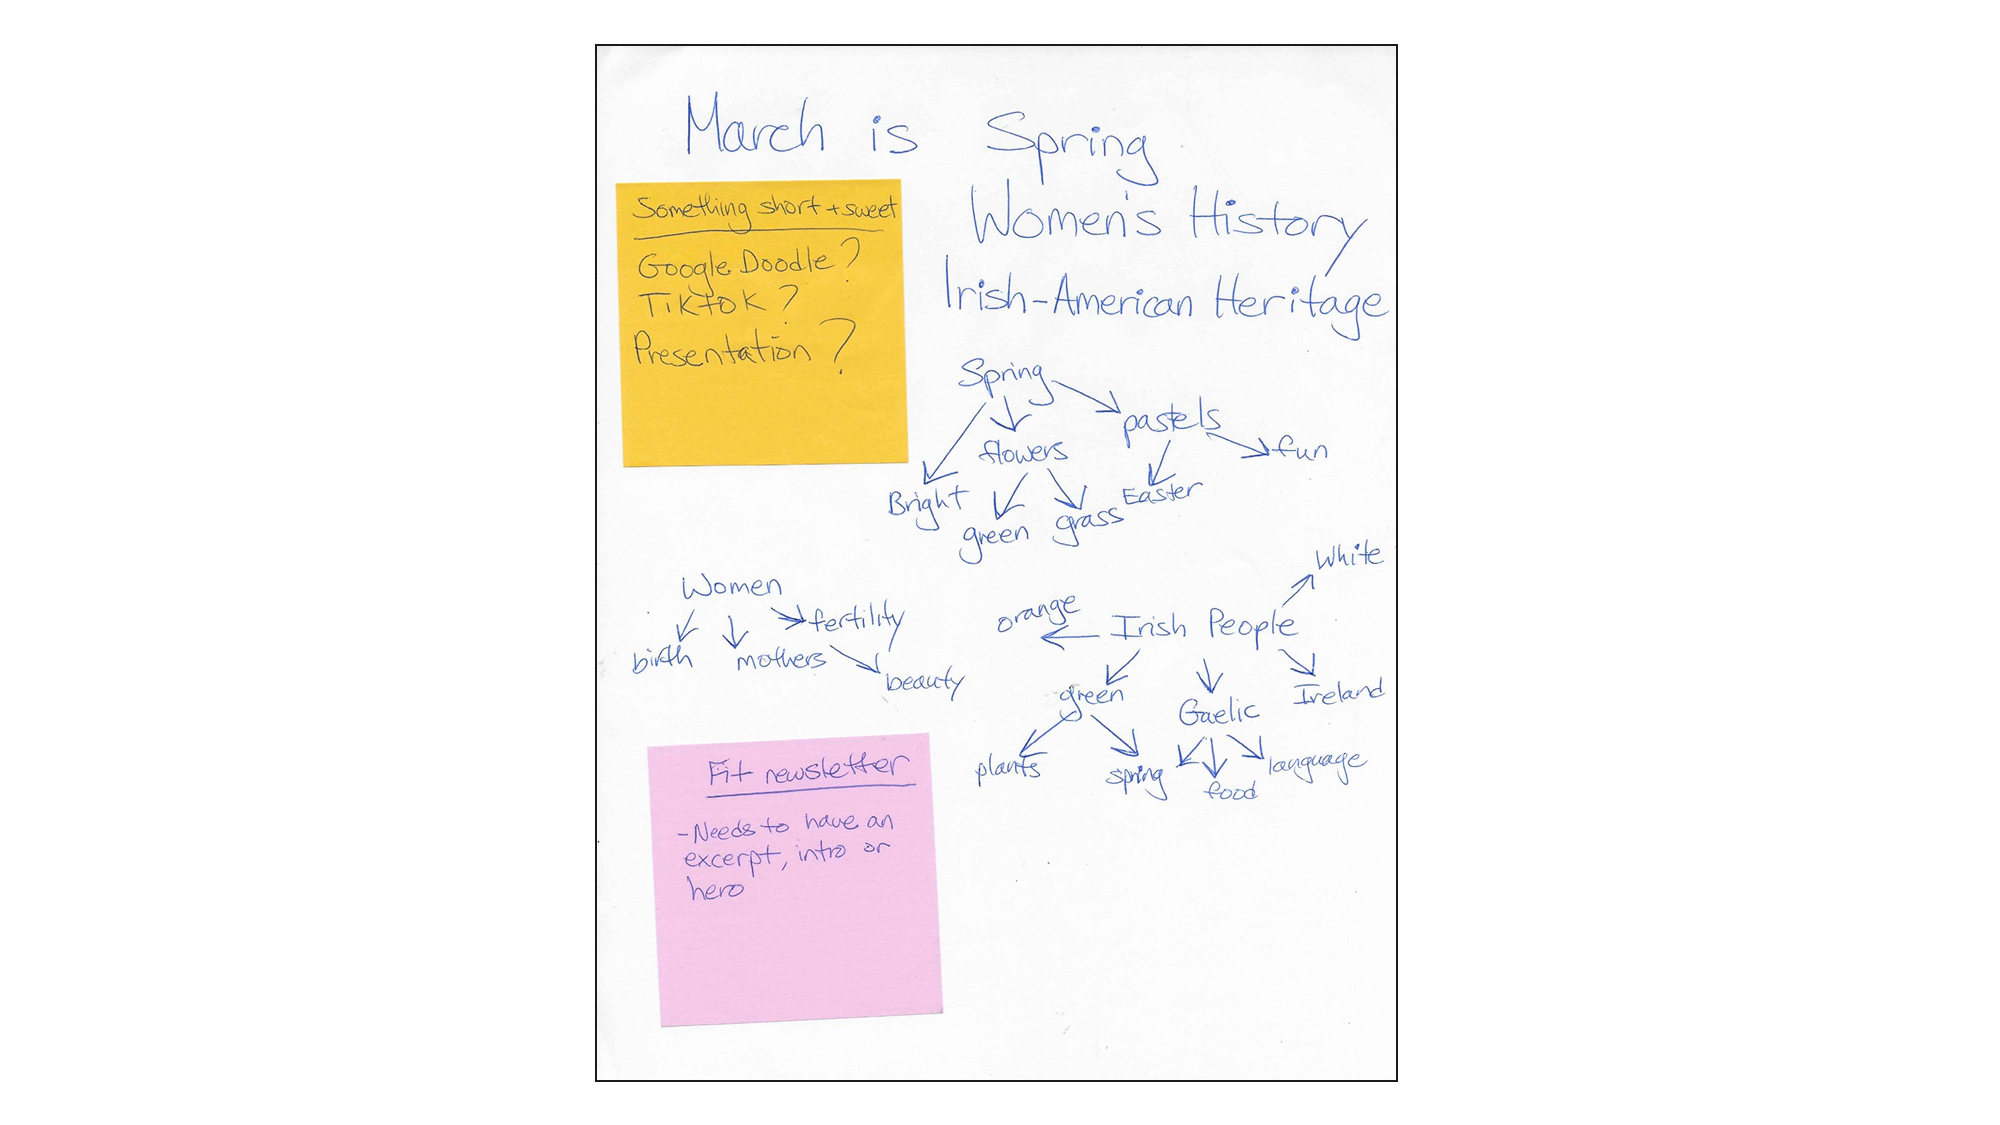 March is Spring
Women's History
Irish-American Heritage
Something short + sweet
Google Doodle?
TikTok?
Presentation?
Spring
pastels
fun
flowers
Bright
green
grass
Easter
Women
fertility
birth
mothers
beauty
White
orange
Irish People
green
Gaelic
Ireland
plants
spring
food
language
Fit newsletter
-Needs to have an
excerpt, intro or
hero